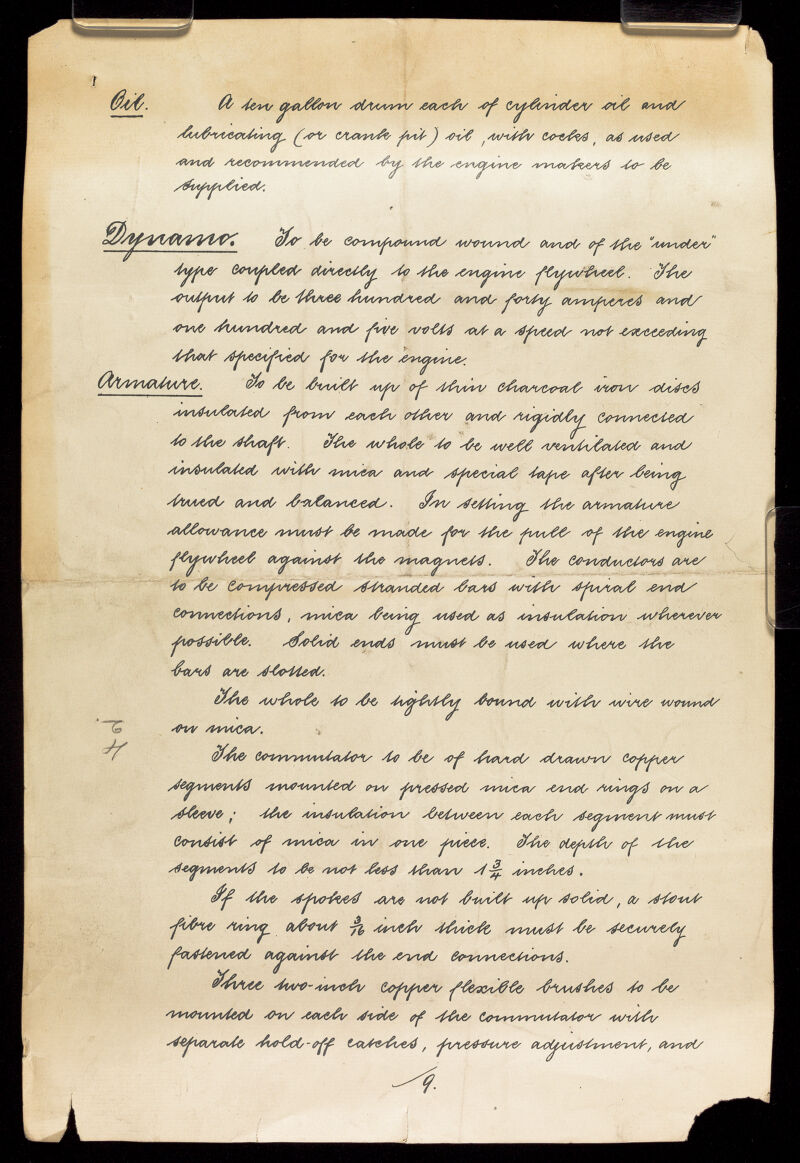 Oil. A ten gallon drum each of cylinder oil and
lubricating (or crank pit) oil, with cocks, as used
and recommended by the engine makers to be
supplied.
Dynamo. To be compound wound and of the "under"
type coupled directly to the engine flywheel. The
output to be three hundred and forty amperes and
one hundred and five volts at a speed not exceeding
that specified for the engine.
Armature. To be built up of thin charcoal iron discs
insulated from each other and rigidly connected
to the shaft. The whole to be well ventilated and
insulated with mica and special tape after being
trued and balanced. In setting the armature
allowance must be made for the pull of the engine
flywheel against the magnets. The conductors are
to be compressed stranded bars with spiral end
connections, mica being used as insulation wherever
possible. Solid ends must be used where the
bars are slotted.
The whole to be tightly bound with wire wound
on mica.
The commutator to be of hard drawn copper
segments mounted on pressed mica end rings on a
sleeve; the insulation between each segment must
consist of mica in one piece. The depth of the
segments to be not less than 1 3/4 inches.
If the spokes are not built up solid, a stout
fibre ring about 3/16 inch thick must be securely
fastened against the end connections.
Three two-inch copper flexible brushes to be
mounted on each side of the commutator with
separate hold-off catches, pressure adjustment, and
9.